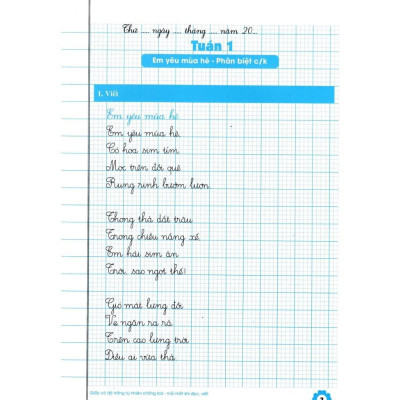 Thứ ... ngày ... tháng ... năm 20...
Tuần 1
Em yêu mùa hè - Phân biệt c/k
1. Viết
Em yêu mùa hè
Em yêu mùa hè
Có hoa sim tím
Mọc trên đồi quê
Rung rinh bướm lượn
Thong thả dắt trâu
Trong chiều nắng xế
Em hái sim ăn
Trời, sao ngọt thế!
Gió mát lưng đồi
Ve ngân ra rả
Trên cao lưng trời
Diều ai vừa thả